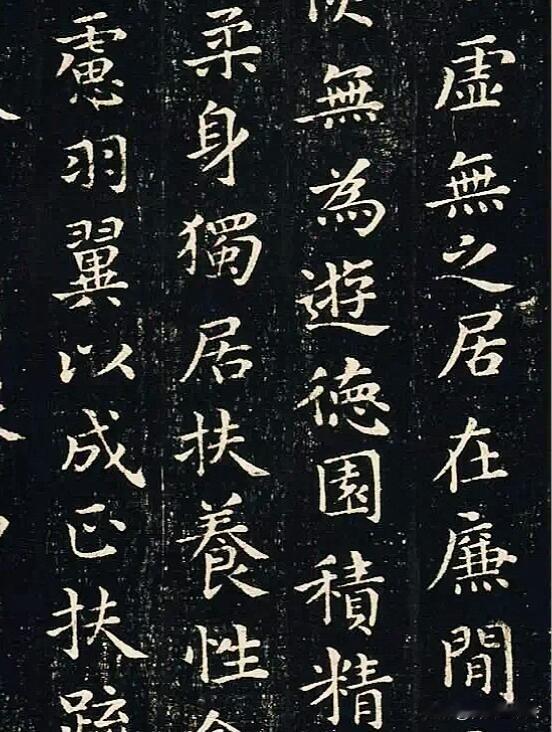 虛無之居在廉間
無為遊德園積精
柔身獨居扶養性
慮羽翼以成正扶疏